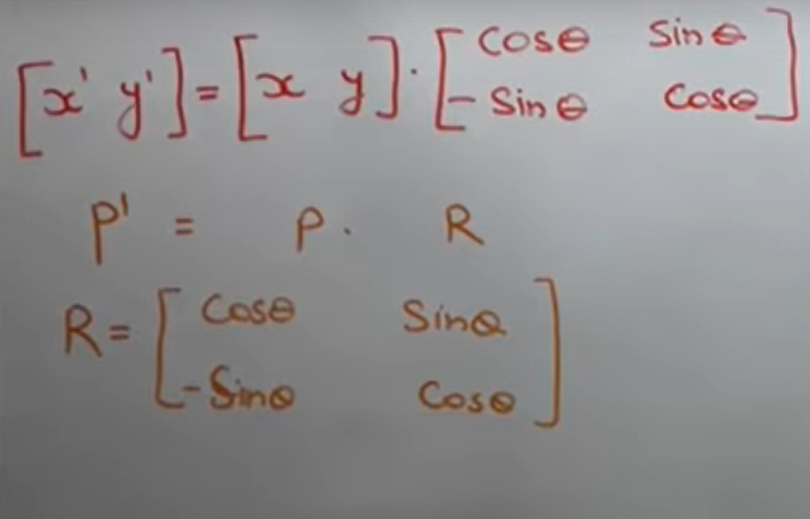 [x' y'] = [x y] · [cosθ sinθ
-sinθ cosθ]
P' = P · R
R = [cosθ sinθ
-sinθ cosθ]